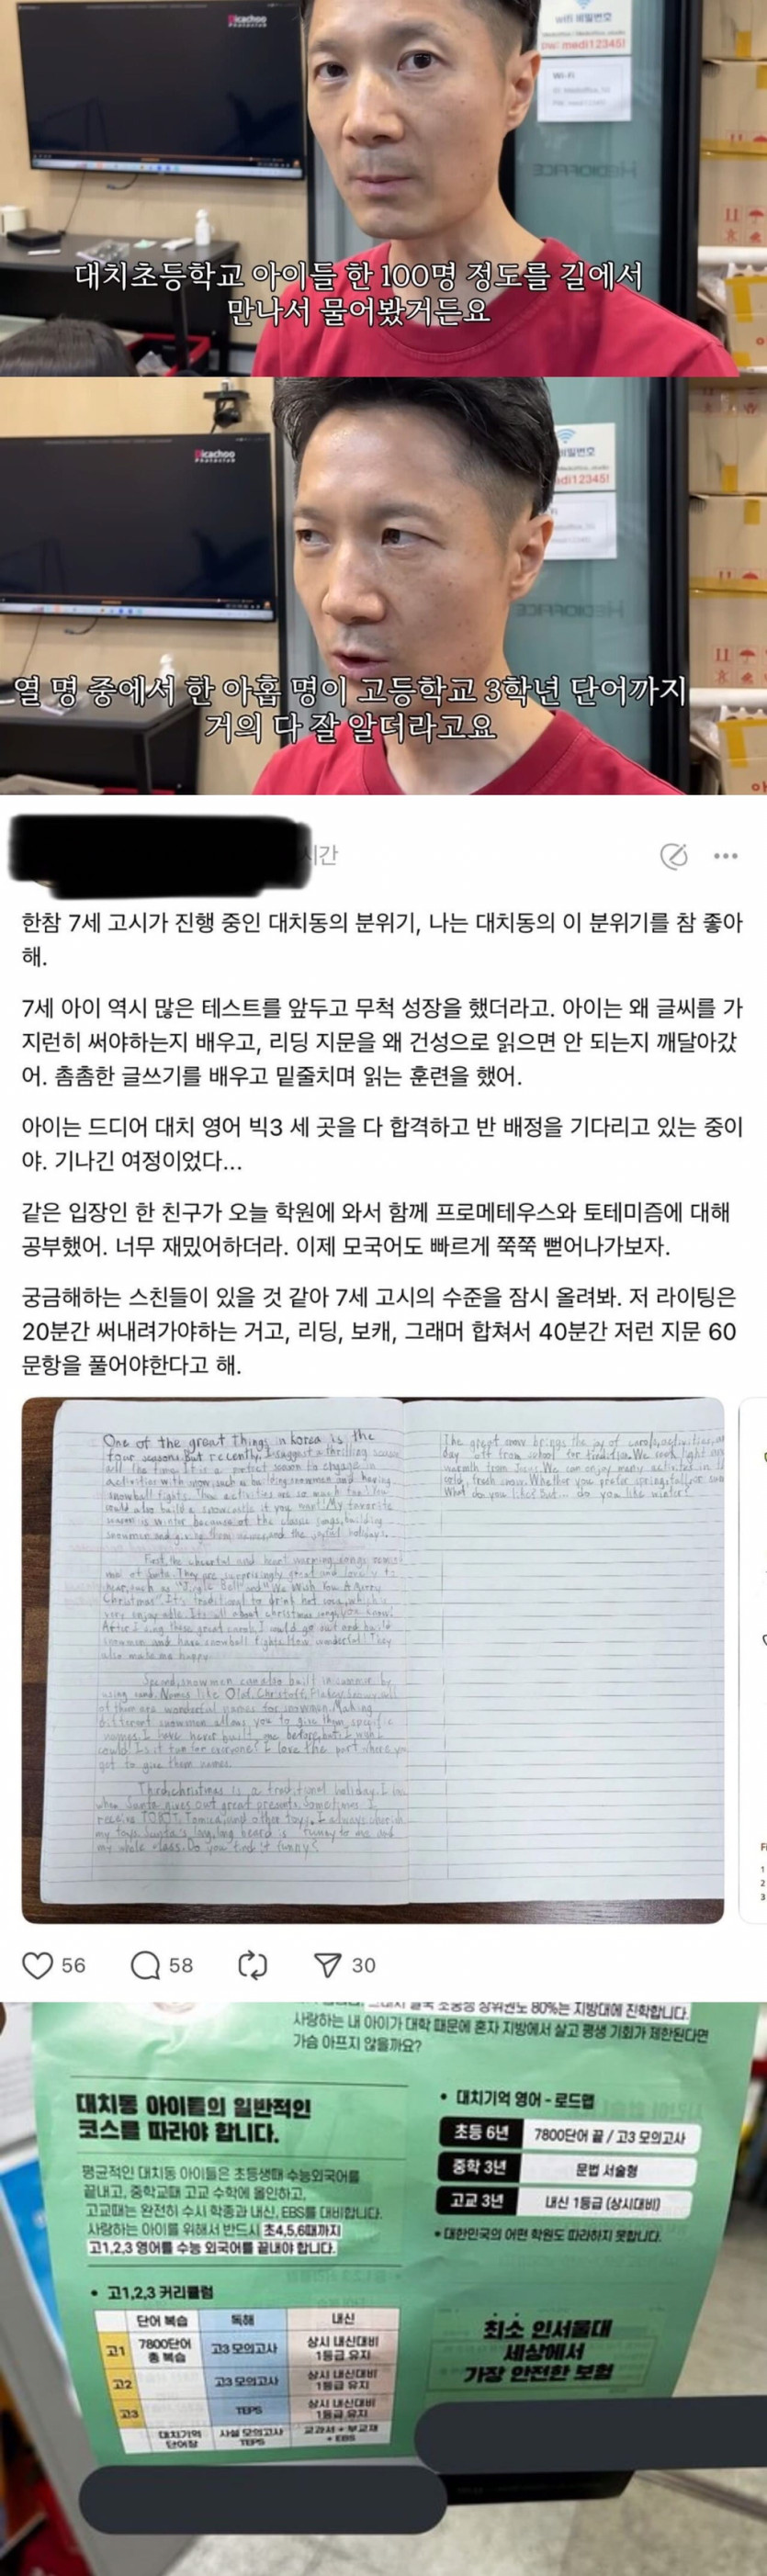 Picachoo
Photoclub
wifi 비밀번호
PW: medi12345!
Wi-Fi
MEDIOFFICE
대치초등학교 아이들 한 100명 정도를 길에서
만나서 물어봤거든요
Picachoo
Photoclub
비밀번호
medi12345!
MEDIOFFICE
열 명 중에서 한 아홉 명이 고등학교 3학년 단어까지
거의 다 잘 알더라고요
시간
한참 7세 고시가 진행 중인 대치동의 분위기, 나는 대치동의 이 분위기를 참 좋아
해.
7세 아이 역시 많은 테스트를 앞두고 무척 성장을 했더라고. 아이는 왜 글씨를 가
지런히 써야하는지 배우고, 리딩 지문을 왜 건성으로 읽으면 안 되는지 깨달아갔
어. 촘촘한 글쓰기를 배우고 밑줄치며 읽는 훈련을 했어.
아이는 드디어 대치 영어 빅3 세 곳을 다 합격하고 반 배정을 기다리고 있는 중이
야. 기나긴 여정이었다...
같은 입장인 한 친구가 오늘 학원에 와서 함께 프로메테우스와 토테미즘에 대해
공부했어. 너무 재밌어하더라. 이제 모국어도 빠르게 쭉쭉 뻗어나가보자.
궁금해하는 스친들이 있을 것 같아 7세 고시의 수준을 잠시 올려봐. 저 라이팅은
20분간 써내려가야하는 거고, 리딩, 보캐, 그래머 합쳐서 40분간 저런 지문 60
문항을 풀어야한다고 해.
One of the great things in korea is the
four seasons. But recently, I suggest a thrilling season
all the time. It is a perfect season to engage in
activities with snow, such as building snowmen and having
snowball fights. These activities are so much fun! You
could also build a snowcastle if you want! My favorite
season is winter because of the classic songs, building
snowmen and giving them names, and the joyful holidays.
First, the cheerful and heart warming songs remind
me of Santa. They are surprisingly great and lovely to
hear, such as "Jingle Bell" and "We Wish You A Merry
Christmas". It's traditional to drink hot cocoa, which is
very enjoyable. It's all about christmas songs, you know!
After I sing these great carols, I would go out and build
snowmen and have snowball fights. How wonderful! They
also make me happy.
Second, snowmen can also built in summer by
using sand. Names like Olaf, Christoff,
of them are wonderful names for snowmen. Making
different snowmen allows you to give them specific
names. I have never built one before, but I wish I
could! Is it fun for everyone? I love the part where you
get to give them names.
Third, christmas is a traditional holiday. I love
when Santa gives out great presents. Sometimes, I
receive TOBOT, Tomica, and other toys. I always cherish
my toys. Santa's long, long beard is funny to me and
my whole class. Do you find it funny?
The great snow brings the joy of carols, activities, and
day off from school for tradition. We
warmth from We can enjoy many activities in the
cold, fresh snow. Whether you prefer spring, fall, or
What do you like? But... do you like winter?
56
58
30
80%는 지방대에 진학합니다.
사랑하는 내 아이가 대학 때문에 혼자 지방에서 살고 평생 기회가 제한된다면
가슴 아프지 않을까요?
대치동 아이들의 일반적인
코스를 따라야 합니다.
평균적인 대치동 아이들은 초등생때 수능외국어를
끝내고, 중학교때 고교 수학에 올인하고,
고교때는 완전히 수시 학종과 내신, EBS를 대비합니다.
사랑하는 아이를 위해서 반드시 초4,5,6때까지
고1,2,3 영어를 수능 외국어를 끝내야 합니다.
• 고1,2,3 커리큘럼
단어 복습 독해 내신
고1 7800단어 총 복습 고3 모의고사 상시 내신대비 1등급 유지
고2 고3 모의고사 상시 내신대비 1등급 유지
고3 TEPS 상시 내신대비 1등급 유지
대치기억 단어장 사설 모의고사 TEPS 교과서 + 부교재 + EBS
• 대치기억 영어 - 로드맵
초등 6년 7800단어 끝 / 고3 모의고사
중학 3년 문법 서술형
고교 3년 내신 1등급 (상시대비)
• 대한민국의 어떤 학원도 따라하지 못합니다.
최소 인서울대
세상에서
가장 안전한 보험